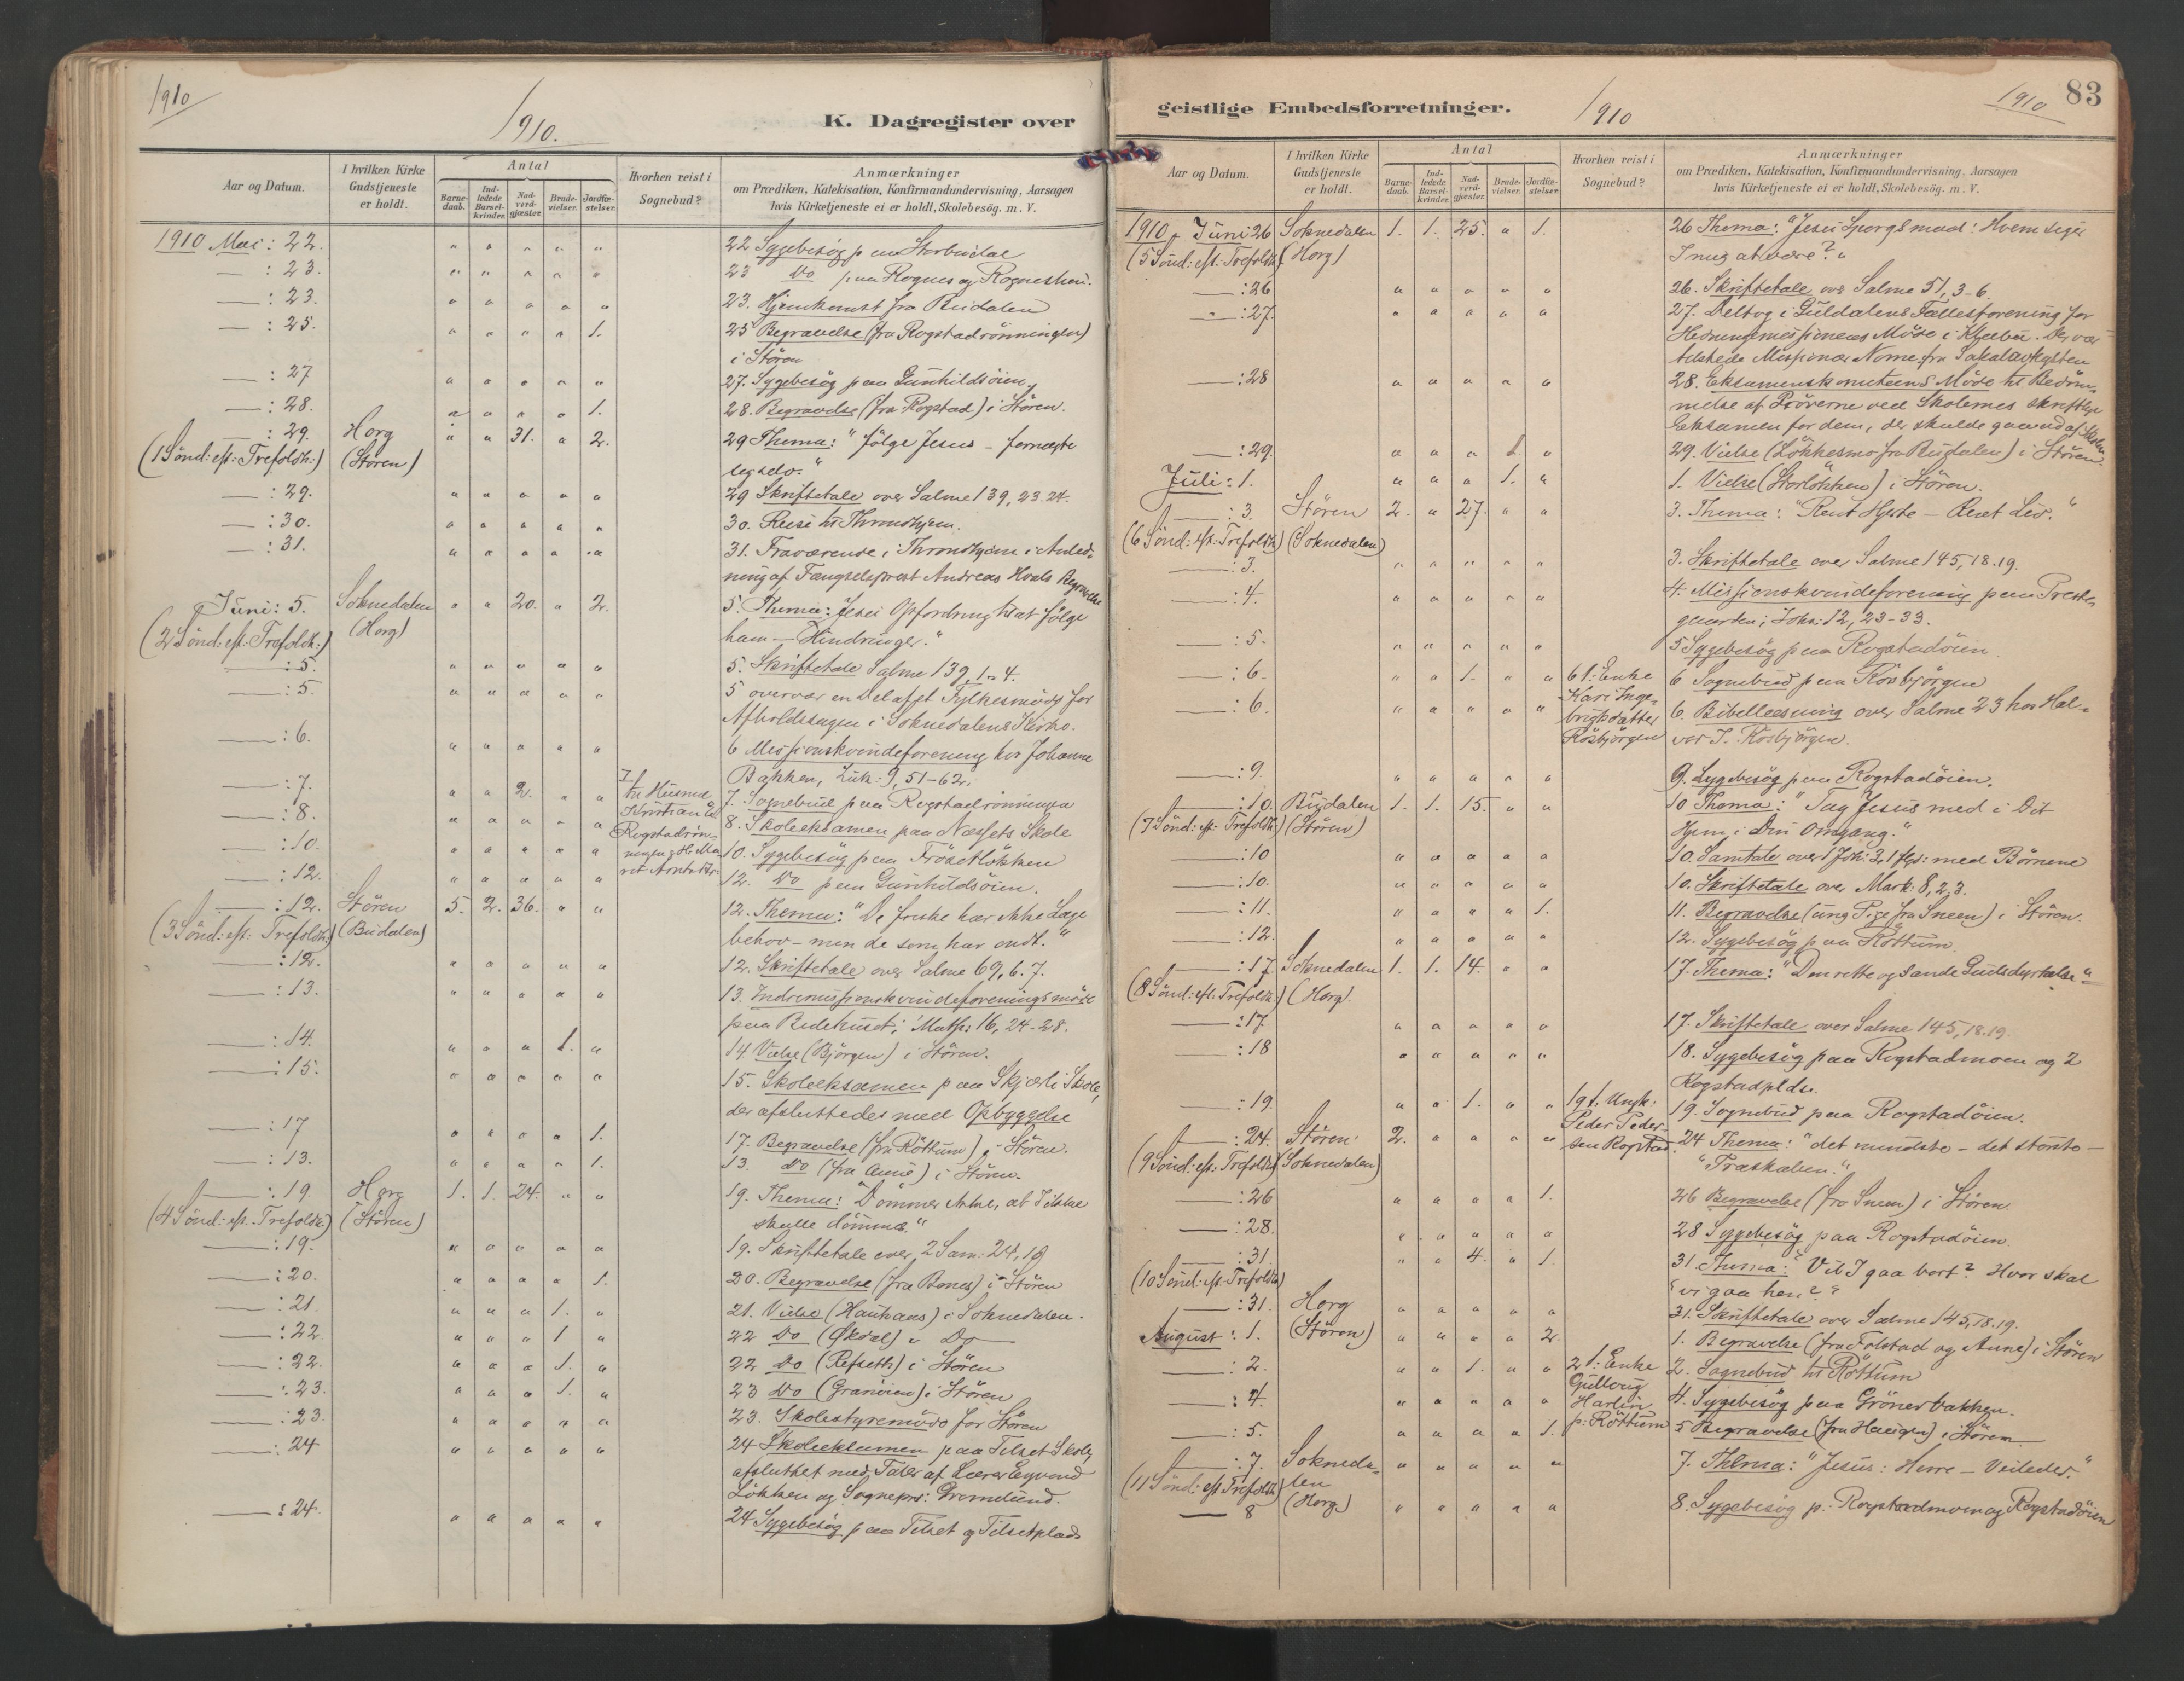 1910
1910.
K. Dagregister over
Aar og Datum.
I hvilken Kirke Gudstjeneste er holdt.
Antal
Barne-daab.
Ind-ledede Barsel-kvinder.
Nad-verd-gjæster.
Brude-vielser.
Jordfæ-stelser.
Hvorhen reist i Sognebud?
Anmærkninger
om Prædiken, Katekisation, Konfirmandundervisning, Aarsagen
hvis Kirketjeneste ei er holdt, Skolebesög. m. V.
1910 Mai: 22. " " " " " 22 Sygebesög p
— : 23. " " " " " 23 Do paa Rognes og
— : 23. " " " " " 23. Hjemkomst fra Budalen
— : 25. " " " " 1. 25 Begravelse (fra Rogstadrönningen)
i Stören
— : 27 " " " " " 27. Sygebesög paa Gunhildsöien,
— : 28. " " " " 1. 28. Begravelse (fra Rogstad) i Stören.
— : 29. Horg " " 31. " 2. 29 Thema: "Fölge Jesus – fornegte
(1 Sönd: eft: Trefoldh:) (Stören) seg selv."
— : 29. " " " " " 29 Skriftetale over Salme 139, 23.24.
— : 30. " " " " " 30. Reise til Throndhjem.
— : 31. " " " " " 31. Fraværende i Throndhjem i Anled-
ning af Fængselsprest Andreas Hoals Begravelse
Juni: 5. Soknedalen " " 20. " 2. 5. Thema: Jesu Opfordring til at fölge
(2 Sönd: eft: Trefoldh:) (Horg) ham – Hindringer."
— : 5. " " " " " 5. Skriftetale Salme 139, 1-4.
— : 5. " " " " " 5 overvar en Del af et Fylkesmöde for
Afholdssagen i Soknedalens Kirke.
— : 6. " " " " " 6 Missionskvindeforening hos Johanne
Bakken, Luk: 9, 51-62.
— : 7. " " 2. " " 7. Sognebud paa Rogstadrönningen
til Husmd
Kristian
Rogstadrön-
ningen og H:
— : 8. " " " " " 8. Skoleeksamen paa Næsets Skole
— : 10. " " " " " 10. Sygebesög paa Frösetlökken
— : 12. " " " " " 12. Do paa Gunhildsöien.
— : 12. Stören 5. 2. 36. " " 12. Thema: "De friske har ikke Læge
(3 Sönd: eft: Trefoldh:) (Budalen) behov – men de som har ondt."
— : 12. " " " " " 12. Skriftetale over Salme 69, 6.7.
— : 13. " " " " " 13. Indremissionskvindeforeningsmöde
paa Bedehuset; Matth: 16, 24-28.
— : 14. " " " 1. " 14 Vielse (Björgen) i Stören.
— : 15. " " " " " 15. Skoleeksamen paa Skjærli Skole,
der afsluttedes med Opbyggelse
— : 17 " " " " 1. 17. Begravelse (fra Röttum) i Stören.
— : 13. " " " " 1. 13. Do (fra Aune) i Stören.
— : 19. Horg 1. 1. 24. " " 19. Thema: "Dömmer ikke, at I ikke
(4 Sönd: eft: Trefoldh:) (Stören) skulle dömmes."
— : 19. " " " " " 19. Skriftetale over 2 Sam: 24, 10
— : 20. " " " " 1. 20. Begravelse (fra Bones) i Stören
— : 21. " " " 1. " 21. Vielse (Haukaas) i Soknedalen.
— : 22 " " " 1 " 22 Do (Økdal) " Do
— : 22. " " " 1. " 22 Do (Refseth) i Stören
— : 23. " " " 1. " 23 Do (Granöien) i Stören
— : 23. " " " " " 23. Skolestyremöde for Stören
— : 24 " " " " " 24 Skoleeksamen paa Tilset Skole,
afsluttet med Taler af Lærer Eyvind
Lökken og Sognepr: Gremelund.
— : 24. " " " " " 24 Sygebesög paa Tilset og Tilsetplads
geistlige Embedsforretninger.
1910
1910
83
Aar og Datum.
I hvilken Kirke Gudstjeneste er holdt.
Antal
Barne-daab.
Ind-ledede Barsel-kvinder.
Nad-verd-gjæster.
Brude-vielser.
Jordfæ-stelser.
Hvorhen reist i Sognebud?
Anmærkninger
om Prædiken, Katekisation, Konfirmandundervisning, Aarsagen
hvis Kirketjeneste ei er holdt, Skolebesög. m. V.
1910 Juni 26 Soknedalen 1. 1. 25. " 1. 26 Thema: "Jesu Spörgsmaal: Hvem siger
(5 Sönd: eft: Trefoldh:) (Horg) I mig at være?"
— : 26 " " " " " 26. Skriftetale over Salme 51, 3-6.
— : 27. " " " " " 27. Deltog i Guldalens Fællesforening for
Hedningemissionens Möde i Klæbu. Der var
tilstede Missionær Nome fra Sakalavkysten
— : 28 " " " " " 28. Eksamenskomiteens Möde til Bedöm-
melse af Pröverne ved Skolernes skriftlige
Eksamen for dem, der skulde gaa ud af Skolen
— : 29. " " " 1 " 29. Vielse (Lökkesmo fra Budalen) i Stören.
Juli: 1. " " " 1. " 1. Vielse (Storlökken) i Stören.
— : 3. Stören 2. " 27. " " 3. Thema: "Rent Hjerte – Renet Liv."
(6 Sönd: eft: Trefoldh:) (Soknedalen)
— : 3. " " " " " 3. Skriftetale over Salme 145, 18.19.
— : 4. " " " " " 4. Missionskvindeforening paa Preste-
gaarden; Joh: 12, 23-33.
— : 5. " " " " " 5 Sygebesög paa Rogstadöien
— : 6. " " 1. " " 6 1: Enke 6 Sognebud paa Rosbjörgen
Kari Inge-
brigtsdatter
Rosbjörgen
— : 6. " " " " " 6. Bibellæsning over Salme 23 hos Hal-
vor I. Rosbjörgen.
— : 9. " " " " " 9. Sygebesög paa Rogstadöien.
— : 10. Budalen 1. 1. 15. " " 10 Thema: "Tag Jesus med i Dit
(7 Sönd: eft: Trefoldh:) (Stören) Hjem i Din Omgang."
— : 10 " " " " " 10. Samtale over 1 Joh: 3, 1 flg: med Börnene
— : 10. " " " " " 10. Skriftetale over Mark: 8, 2, 3.
— : 11. " " " " 1. 11. Begravelse (ung Pige fra Sneen) i Stören.
— : 12. " " " " " 12. Sygebesög paa Röttum.
— : 17. Soknedalen 1. 1. 14. " " 17. Thema: "Den rette og sande Gudsdyrkelse"
(8 Sönd: eft: Trefoldh:) (Horg)
— : 17. " " " " " 17. Skriftetale over Salme 145, 18.19.
— : 18 " " " " " 18. Sygebesög paa Rogstadmoen og 2
Rogstadplds.
— : 19. " " 1. " " 19 1: Ungk: 19. Sognebud paa Rogstadöien.
Peder Peder-
sen Rogstad.
— : 24. Stören 2. " " " " 24 Thema: "det mindste – det störste –
(9 Sönd: eft: Trefoldh:) (Soknedalen) "Træskaalen."
— : 26 " " " " 1. 26 Begravelse (fra Sneen) i Stören.
— : 28. " " " " " 28 Sygebesög paa Rogstadöien.
— : 31. " " 4. " 1 31. Thema: "Vil I gaa bort? Hvor skal
(10 Sönd: eft: Trefoldh:) "vi gaa hen?"
— : 31. Horg " " " " " 31. Skriftetale over Salme 145, 18.19.
August: 1. (Stören) " " " " 2. 1. Begravelse (fra Folstad og Aune) i Stören
— : 2. " " 1. " " 2 1: Enke 2. Sognebud til Röttum
Gullaug
Harlin
p: Röttum
— : 4. " " " " " 4. Sygebesög paa Grönerbakken.
— : 5. " " " " 1. 5 Begravelse (fra Haugen) i Stören
— : 7. Sokneda- " " " " " 7. Thema: "Jesus: Herre – Veileder."
(11 Sönd: eft: Trefoldh:) len
(Horg)
— 8 " " " " " 8. Sygebesög p: Rogstadmoen og Rogstadöien